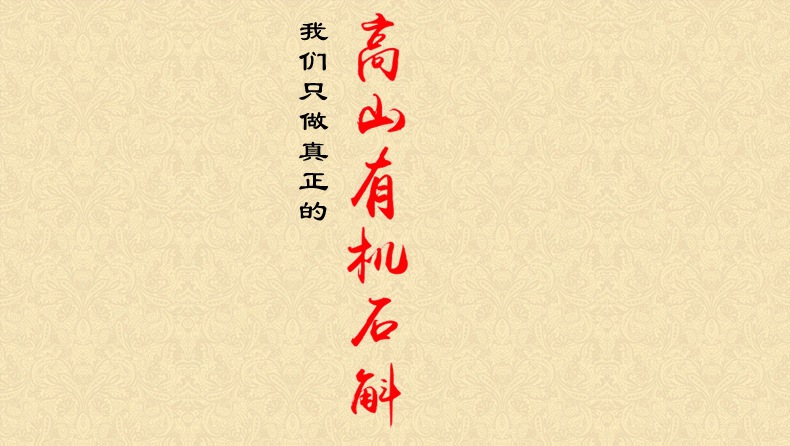 我们只做真正的
高山有机石斛